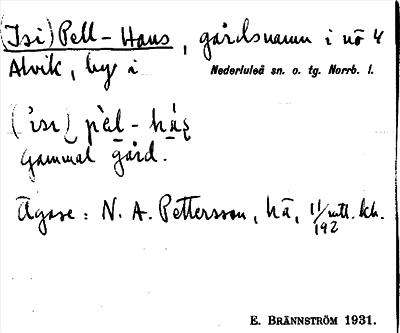 (Isi) Pell-Hans, gårdsnamn i nö 4
Alvik, by i Nederluleå sn. o. tg. Norrb. l.
(ˈisi) pèl-há
Gammal gård.
Ägare: N. A. Pettersson, hä, 11/192 mtl.
E. BRÄNNSTRÖM 1931.